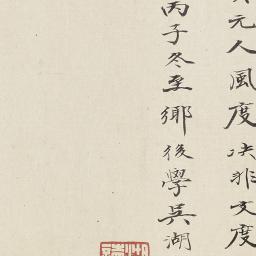 元人風度決非文度
丙子冬至鄉後學吳湖